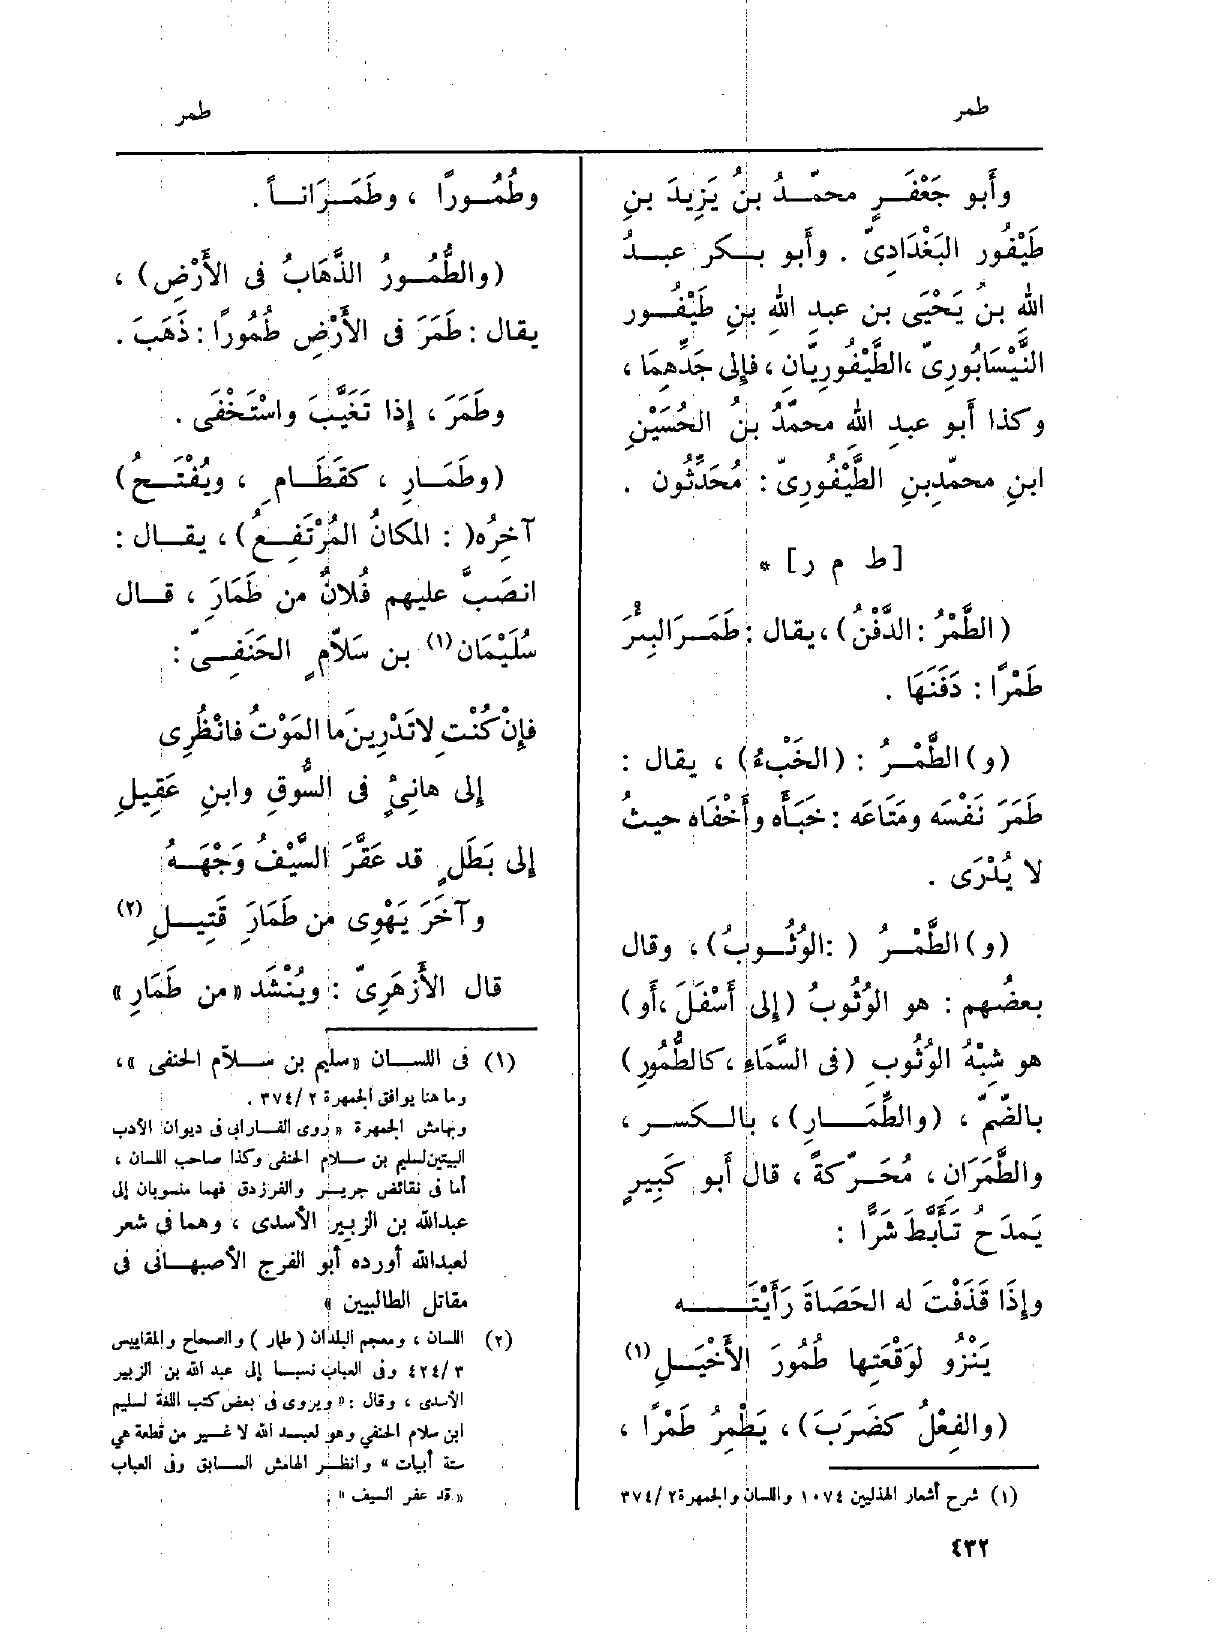 طمر
طمر
وأَبو جَعْفَرٍ محمّدُ بنُ يَزِيدَ بنِ
طَيْفُور البَغْدَادِىّ . وأَبو بكر عبدُ
اللهِ بنُ يَحْيَى بن عبدِ اللهِ بنِ طَيْفُور
النَّيْسَابُورِىّ ، الطَّيْفُورِيّانِ ، فإِلى جَدِّهِمَا ،
وكذا أَبو عبدِ اللهِ محمّدُ بنُ الحُسَيْنِ
ابنِ محمّدِ بنِ الطَّيْفُورِىّ : مُحَدِّثُون .
[ط م ر] *
(الطَّمْرُ : الدَّفْنُ) ، يقال : طَمَرَ البِئْرَ
طَمْرًا : دَفَنَهَا .
(و) الطَّمْرُ : (الخَبْءُ) ، يقال :
طَمَرَ نَفْسَه ومَتَاعَه : خَبَأَه وأَخْفَاه حيثُ
لا يُدْرَى .
(و) الطَّمْرُ ( : الوُثُوبُ) ، وقال
بعضُهم : هو الوُثُوبُ (إِلى أَسْفَلَ ، أَو)
هو شِبْهُ الوُثُوبِ (فى السَّمَاءِ ، كالطُّمُورِ)
بالضّمّ ، (والطِّمَارِ) ، بالكسر ،
والطَّمَرَانِ ، مُحَرَّكةً ، قال أَبو كَبِيرٍ
يَمدَح تَأَبَّطَ شَرًّا :
وإِذَا قَذَفْتَ له الحَصَاةَ رَأَيْتَه
يَنْزُو لوَقْعَتِها طُمُورَ الأَخْيَلِ (١)
(والفِعْلُ كضَرَبَ) ، يَطْمِرُ طَمْرًا ،
(١) شرح أشعار الهذليين ١٠٧٤ واللسان والجمهرة ٢ / ٣٧٤
وطُمُورًا ، وطَمَرَاناً .
(والطُّمُورُ الذَّهَابُ فى الأَرْضِ) ،
يقال : طَمَرَ فى الأَرْضِ طُمُورًا : ذَهَبَ .
وطَمَرَ ، إِذا تَغَيَّبَ واسْتَخْفَى .
(وطَمَارِ ، كقَطَامِ ، ويُفْتَحُ)
آخِرُه( : المَكانُ المُرْتَفِعُ) ، يقال :
انصَبَّ عليهم فُلانٌ من طَمَارَ ، قال
سُلَيْمَان (١) بن سَلاّمٍ الحَنَفِىّ :
فإِنْ كُنْتِ لا تَدْرِينَ ما المَوْتُ فانْظُرِى
إِلى هانِئٍ فى السُّوقِ وابنِ عَقِيلِ
إِلى بَطَلٍ قد عَقَّرَ السَّيْفُ وَجْهَهُ
وآخَرَ يَهْوِى من طَمَارَِ قَتِيلِ (٢)
قال الأَزهَرِىّ : ويُنْشَد «من طَمَارِ»
(١) فى اللسان «سليم بن سلاّم الحنفى » ،
وما هنا يوافق الجمهرة ٢ / ٣٧٤ .
وبهامش الجمهرة « روى الفارابى فى ديوان الأدب
البيتين لسليم بن سلام الحنفى وكذا صاحب اللسان ،
أما فى نقائض جرير والفرزدق فهما منسوبان إلى
عبدالله بن الزبير الأسدى ، وهما فى شعر
لعبدالله أورده أبو الفرج الأصبهانى فى
مقاتل الطالبيين »
(٢) اللسان ، ومعجم البلدان ( طمار ) والصحاح والمقاييس
٣ / ٤٢٤ وفى العباب نسبا إلى عبد الله بن الزبير
الأسدى ، وقال : « ويروى فى بعض كتب اللغة لسليم
ابن سلام الحنفي وهو لعبد الله لا غير من قطعة هي
ستة أبيات » وانظر الهامش السابق وفى العباب
« قد عفر السيف » .
٤٣٢